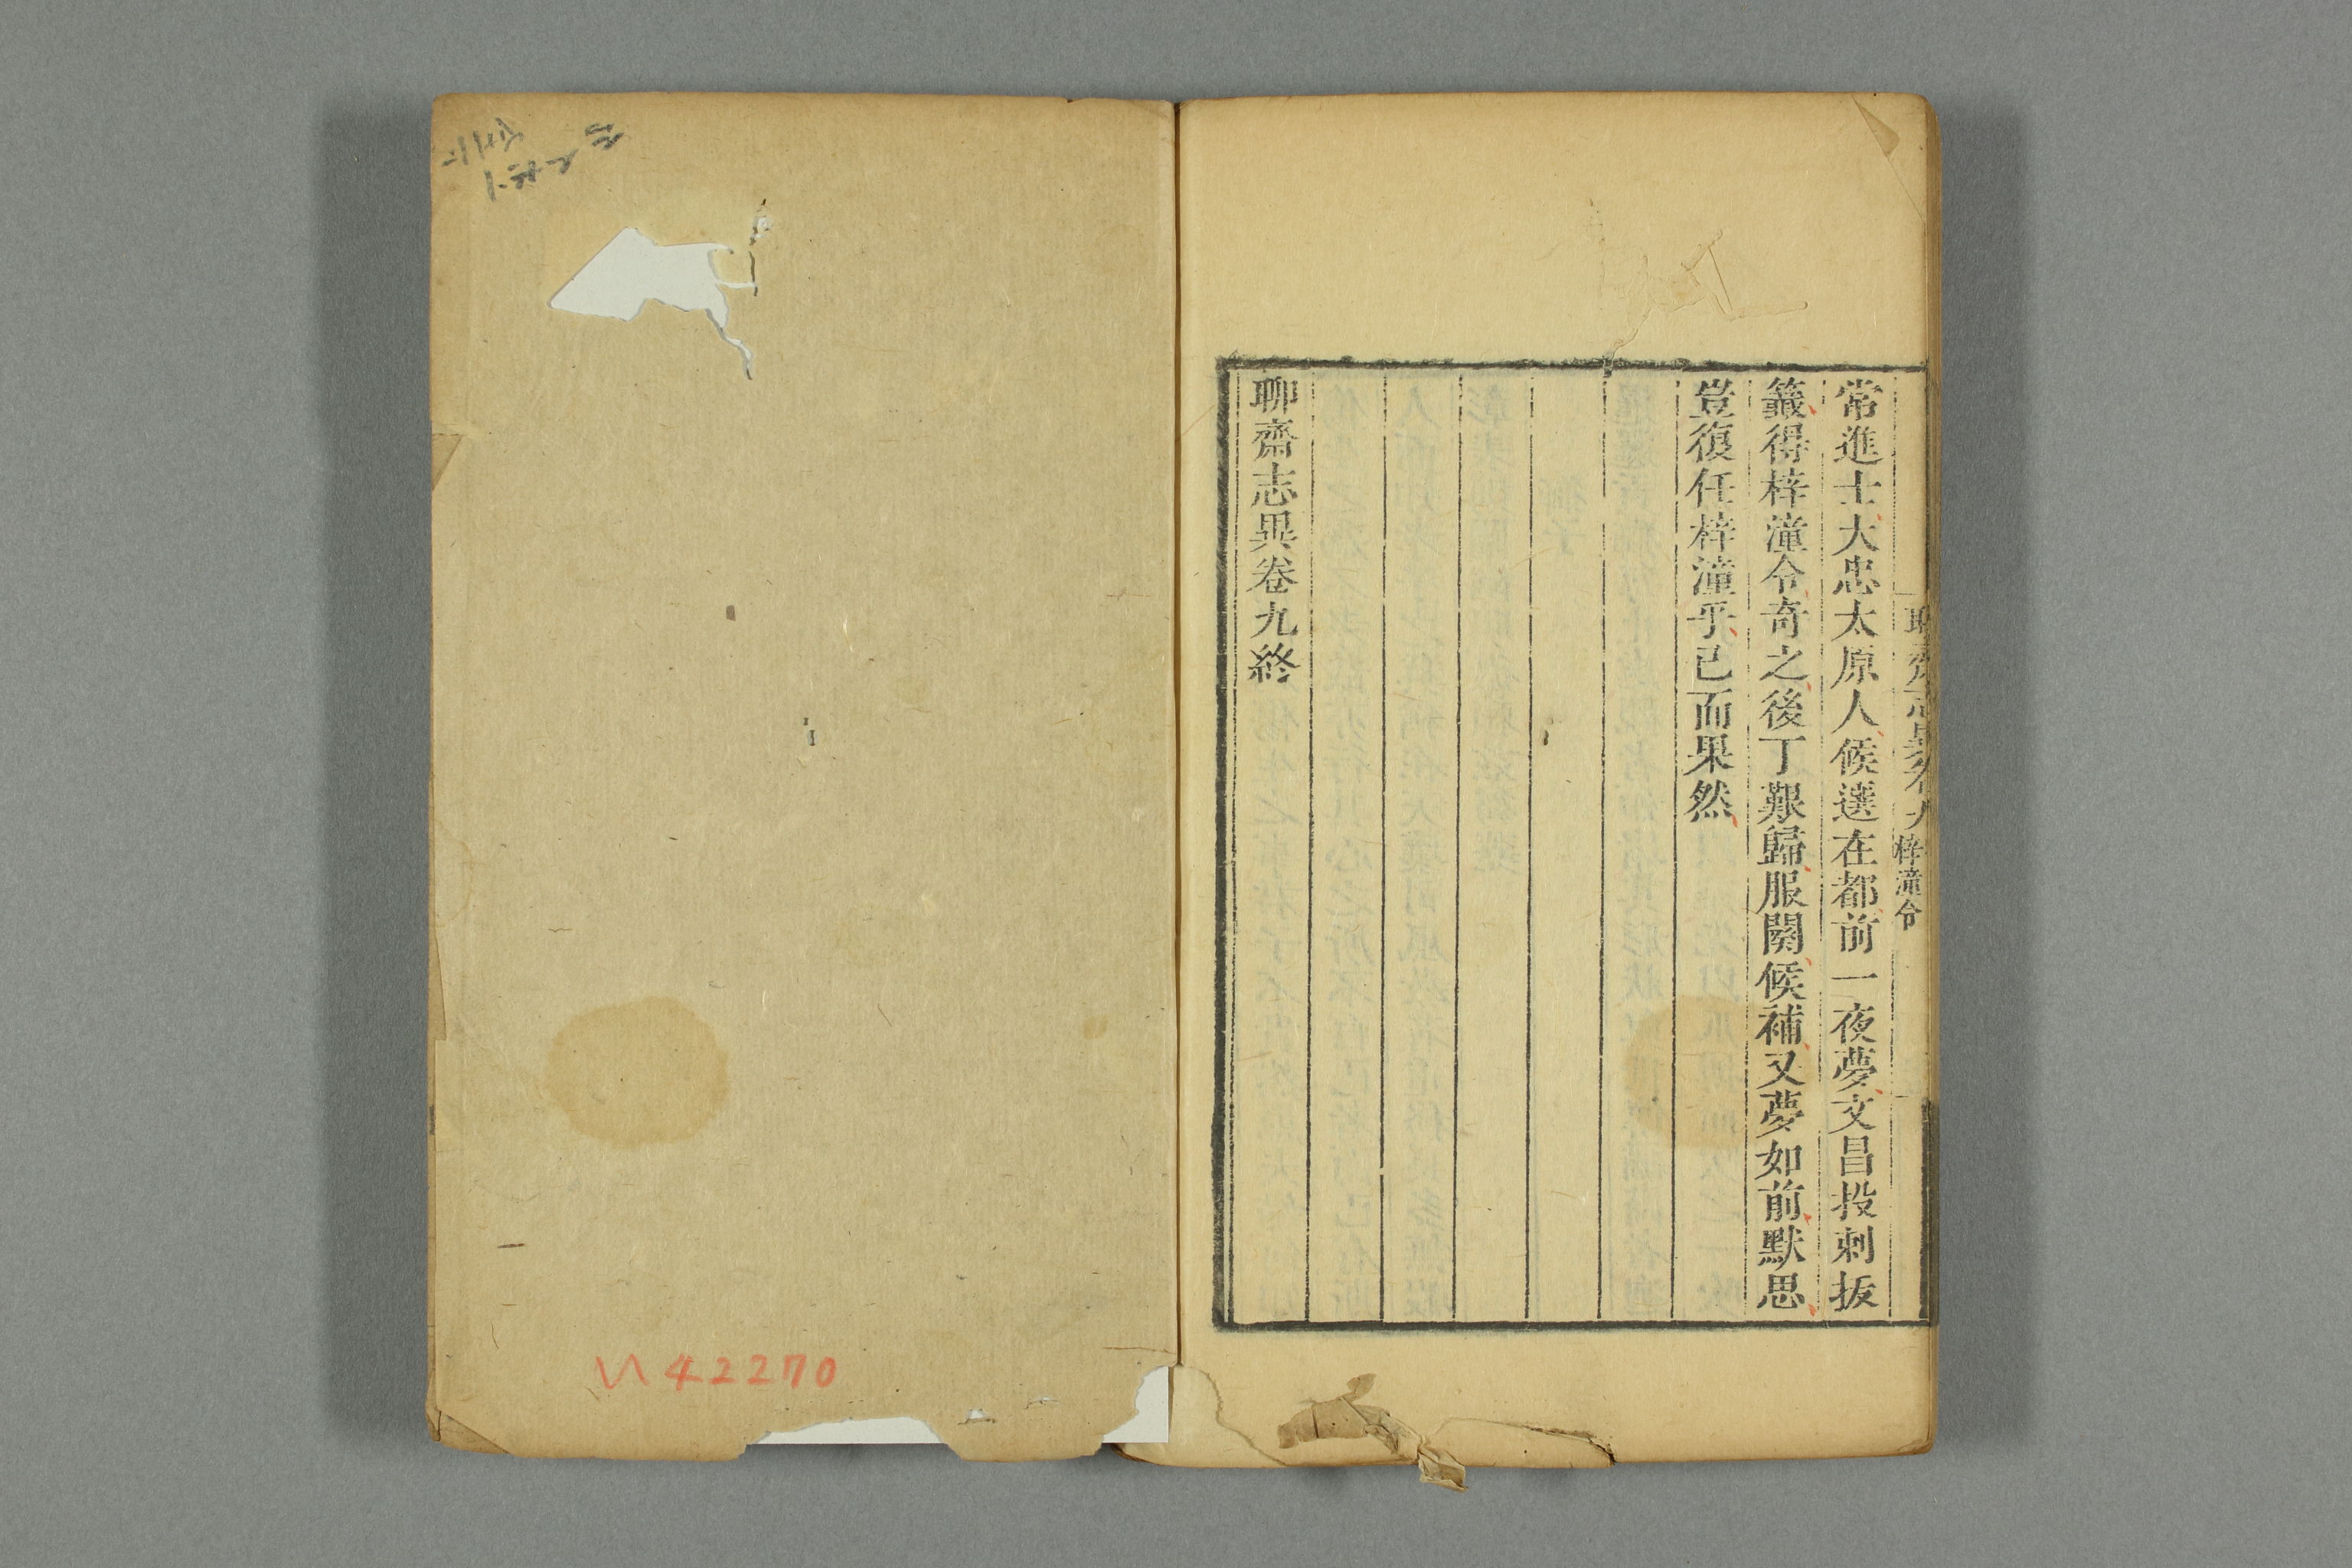 聊齋志異卷九 梓潼令
常進士大忠太原人候選在都前一夜夢文昌投刺拔
籤得梓潼令奇之後丁艱歸服闋候補又夢如前默思
豈復任梓潼乎已而果然
聊齋志異卷九終
42270